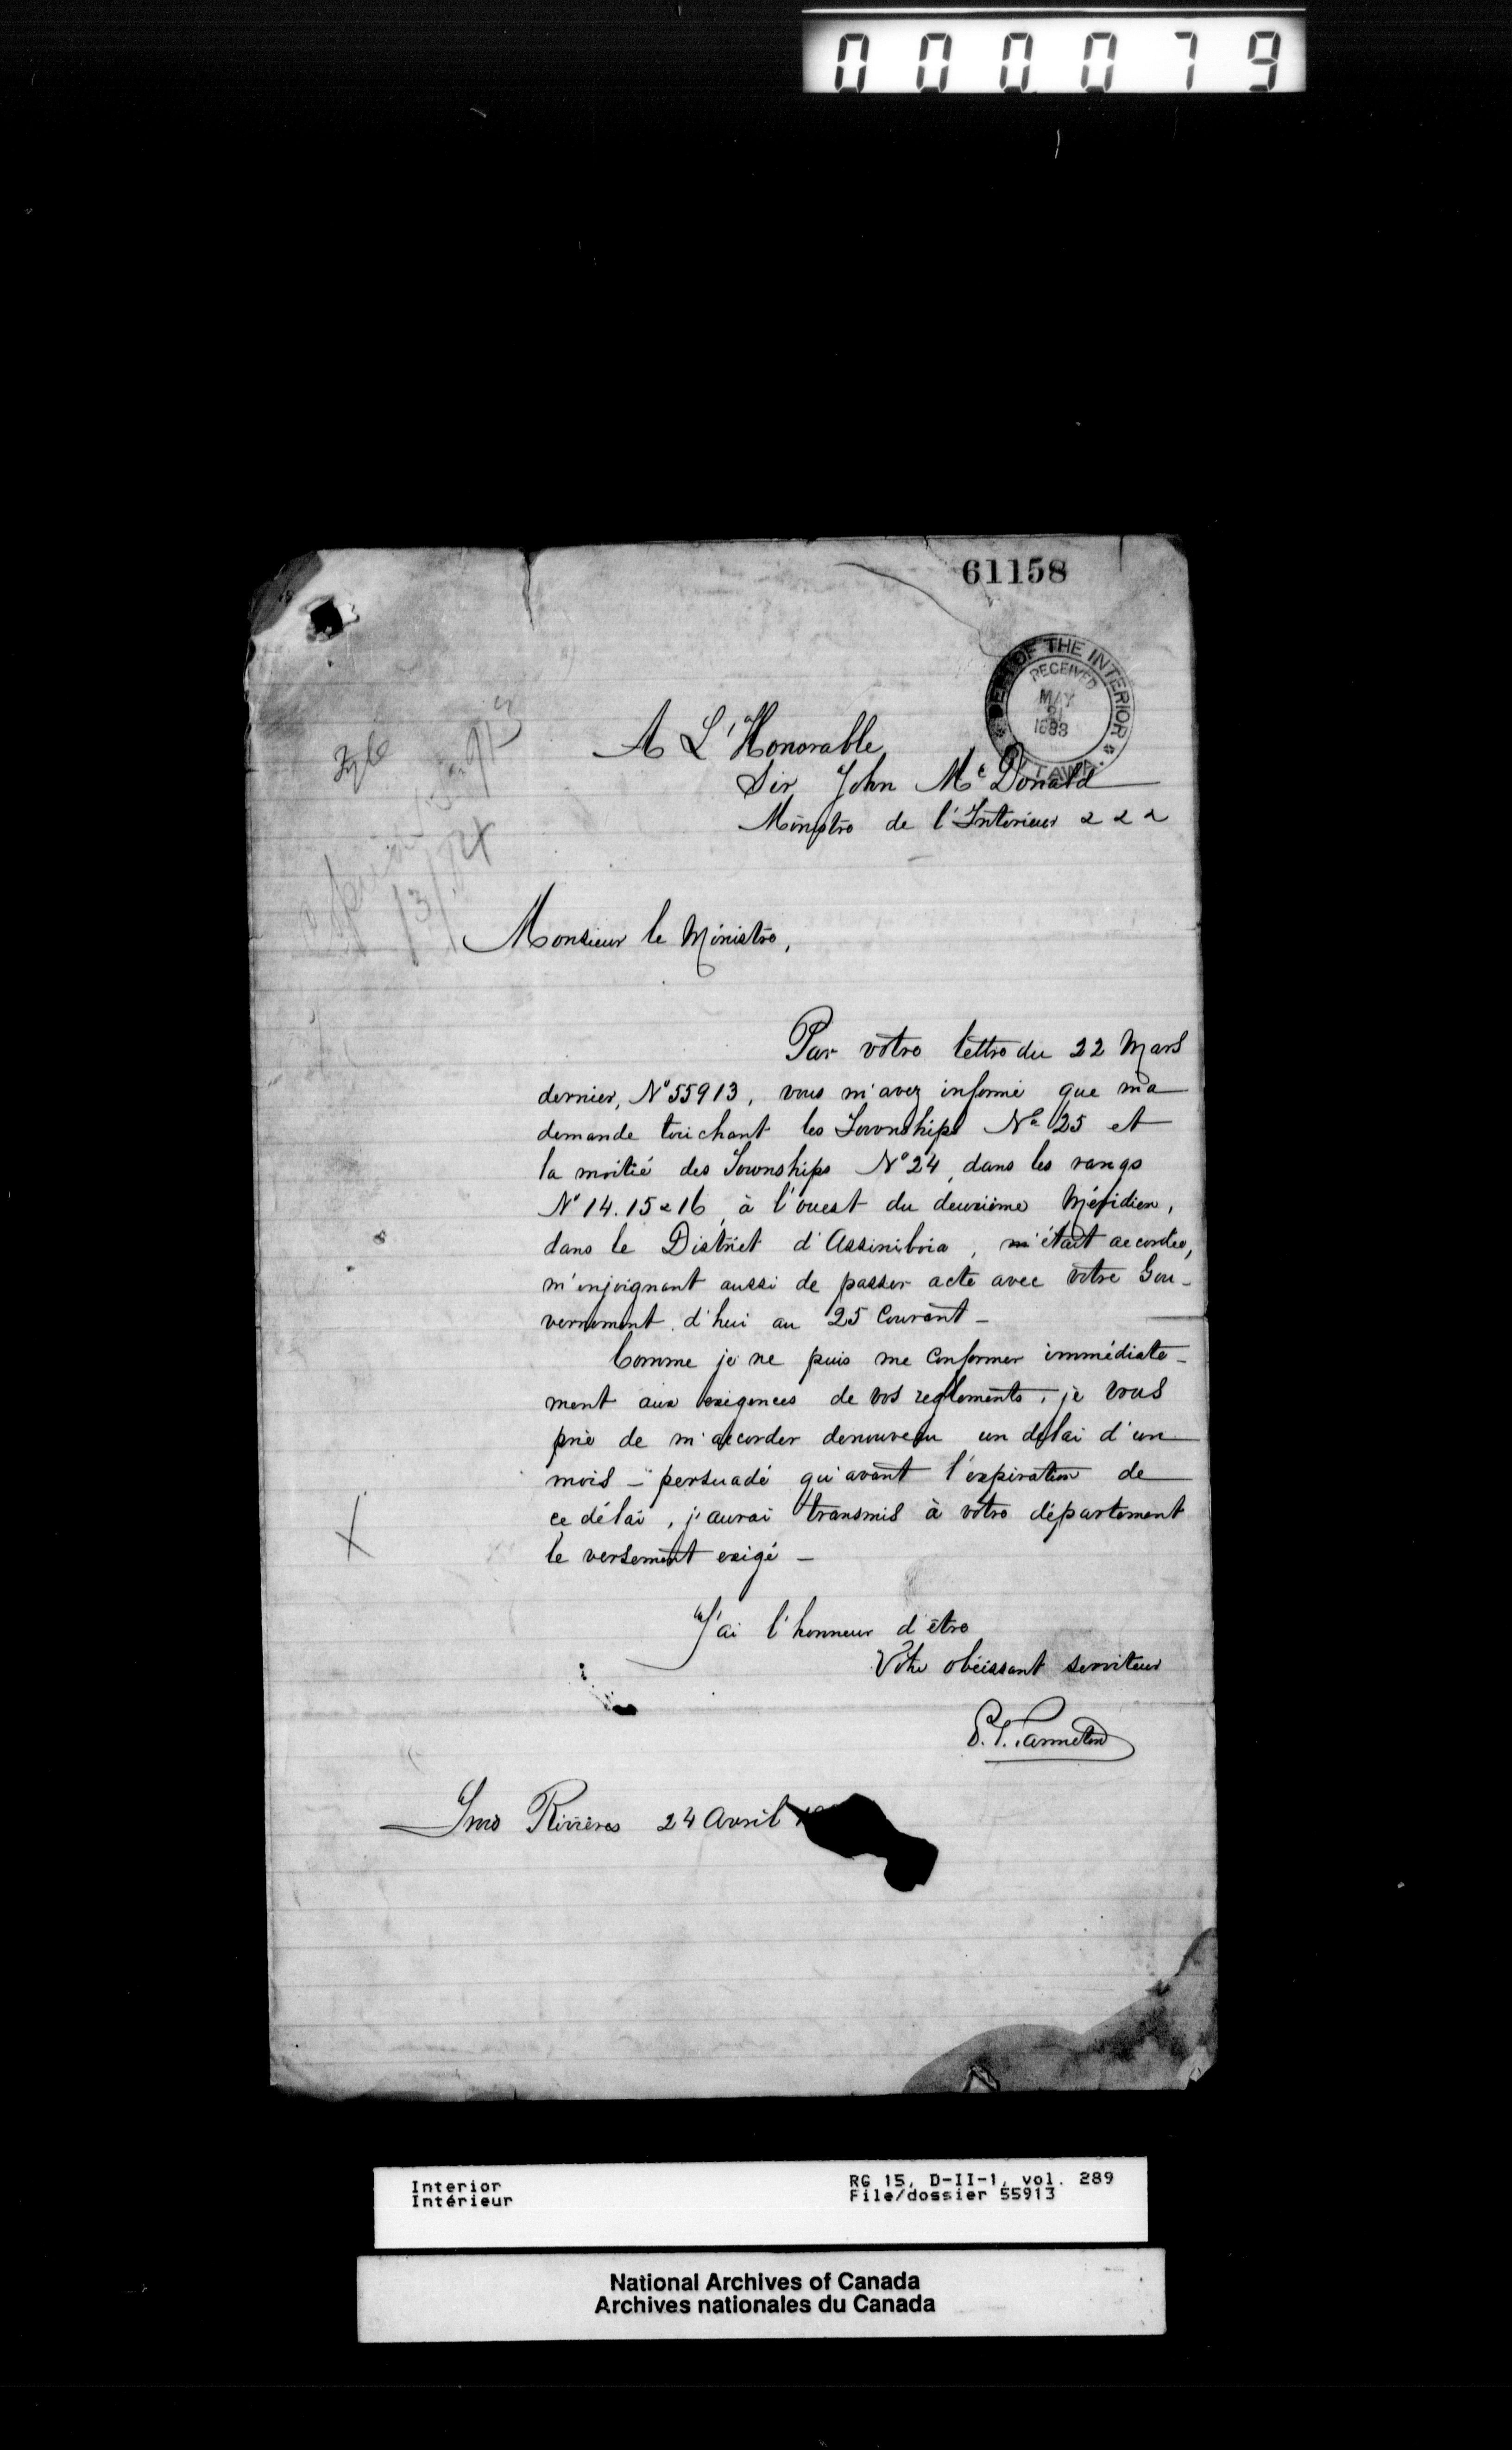 000079
61158
DEPT OF THE INTERIOR
RECEIVED
MAY
1883
OTTAWA.
A L'Honorable
Sir John McDonald
Ministre de l'Interieur & & &
Monsieur le Ministre,
Par votre lettre du 22 Mars
dernier, No 55913, vous m'avez informé que ma
demande touchant les Townships No 25 et
la moitié des Townships No 24, dans les rangs
No 14. 15 & 16, à l'ouest du deuxième Méridien,
dans le District d'Assiniboia, m'était accordée,
m'enjoignant aussi de passer acte avec votre Gou-
vernement d'hui au 25 Courant -
Comme je ne puis me conformer immédiate-
ment aux exigences de vos reglements, je vous
prie de m'accorder denouveau un délai d'un
mois - persuadé qu'avant l'expiration de
ce délai, j'aurai transmis à votre département
le versement exigé -
J'ai l'honneur d'être
Votre obéissant serviteur
Trois Rivières 24 Avril
Interior
Intérieur
RG 15, D-II-1, vol. 289
File/dossier 55913
National Archives of Canada
Archives nationales du Canada